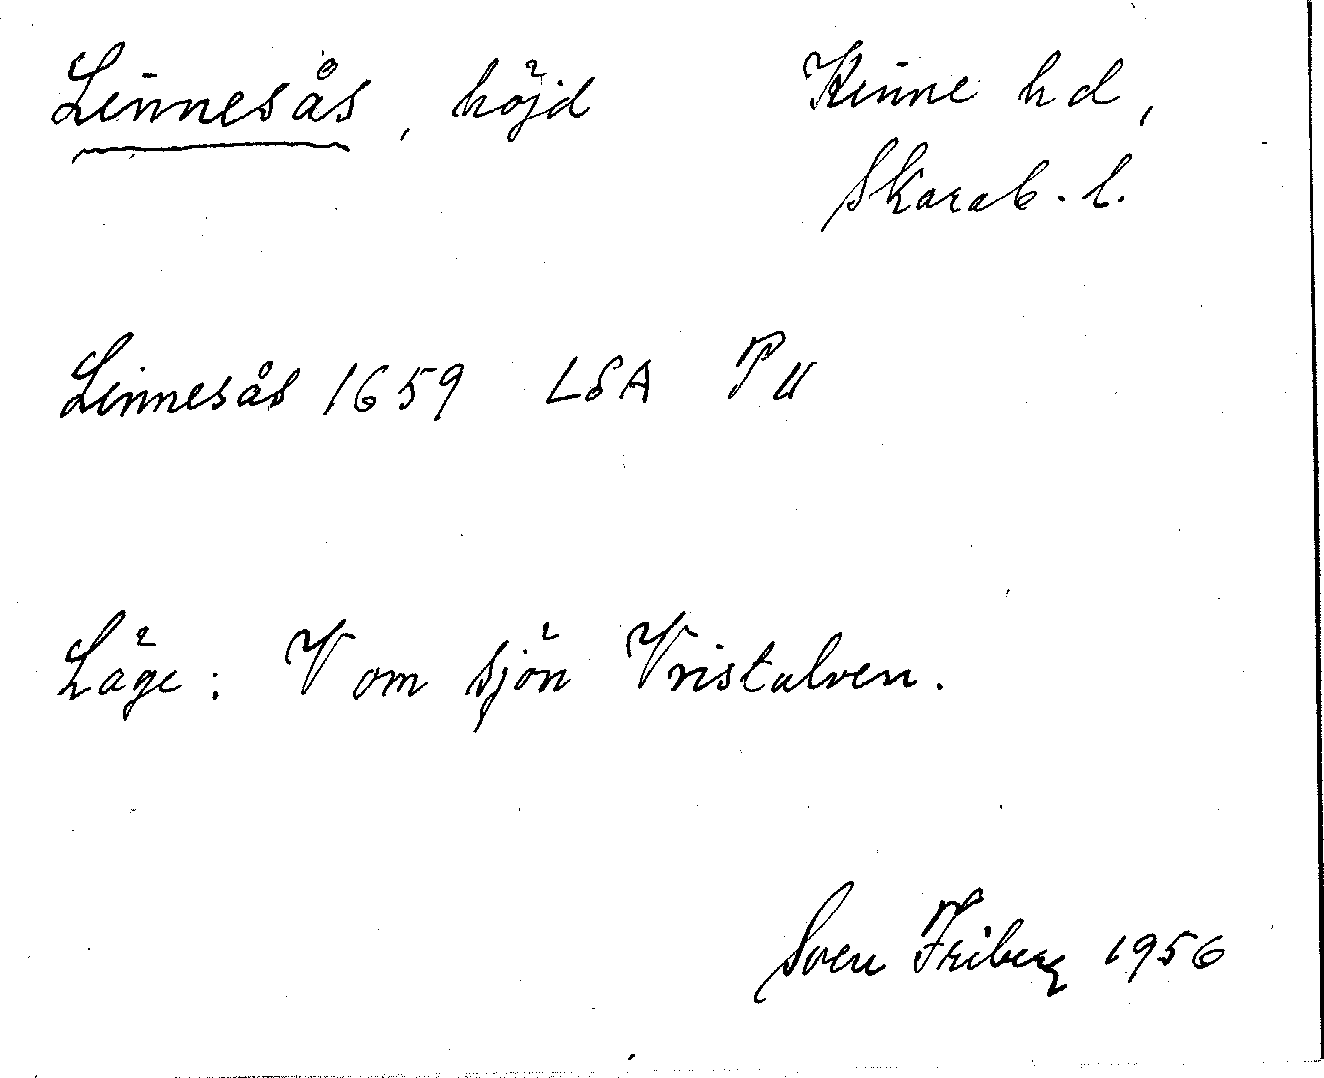 Linnesås, höjd Kinne hd,
Skarab. l.
Linnesås 1659 LSA P 11
Läge: V om sjön Vristulven.
Sven Friberg 1956